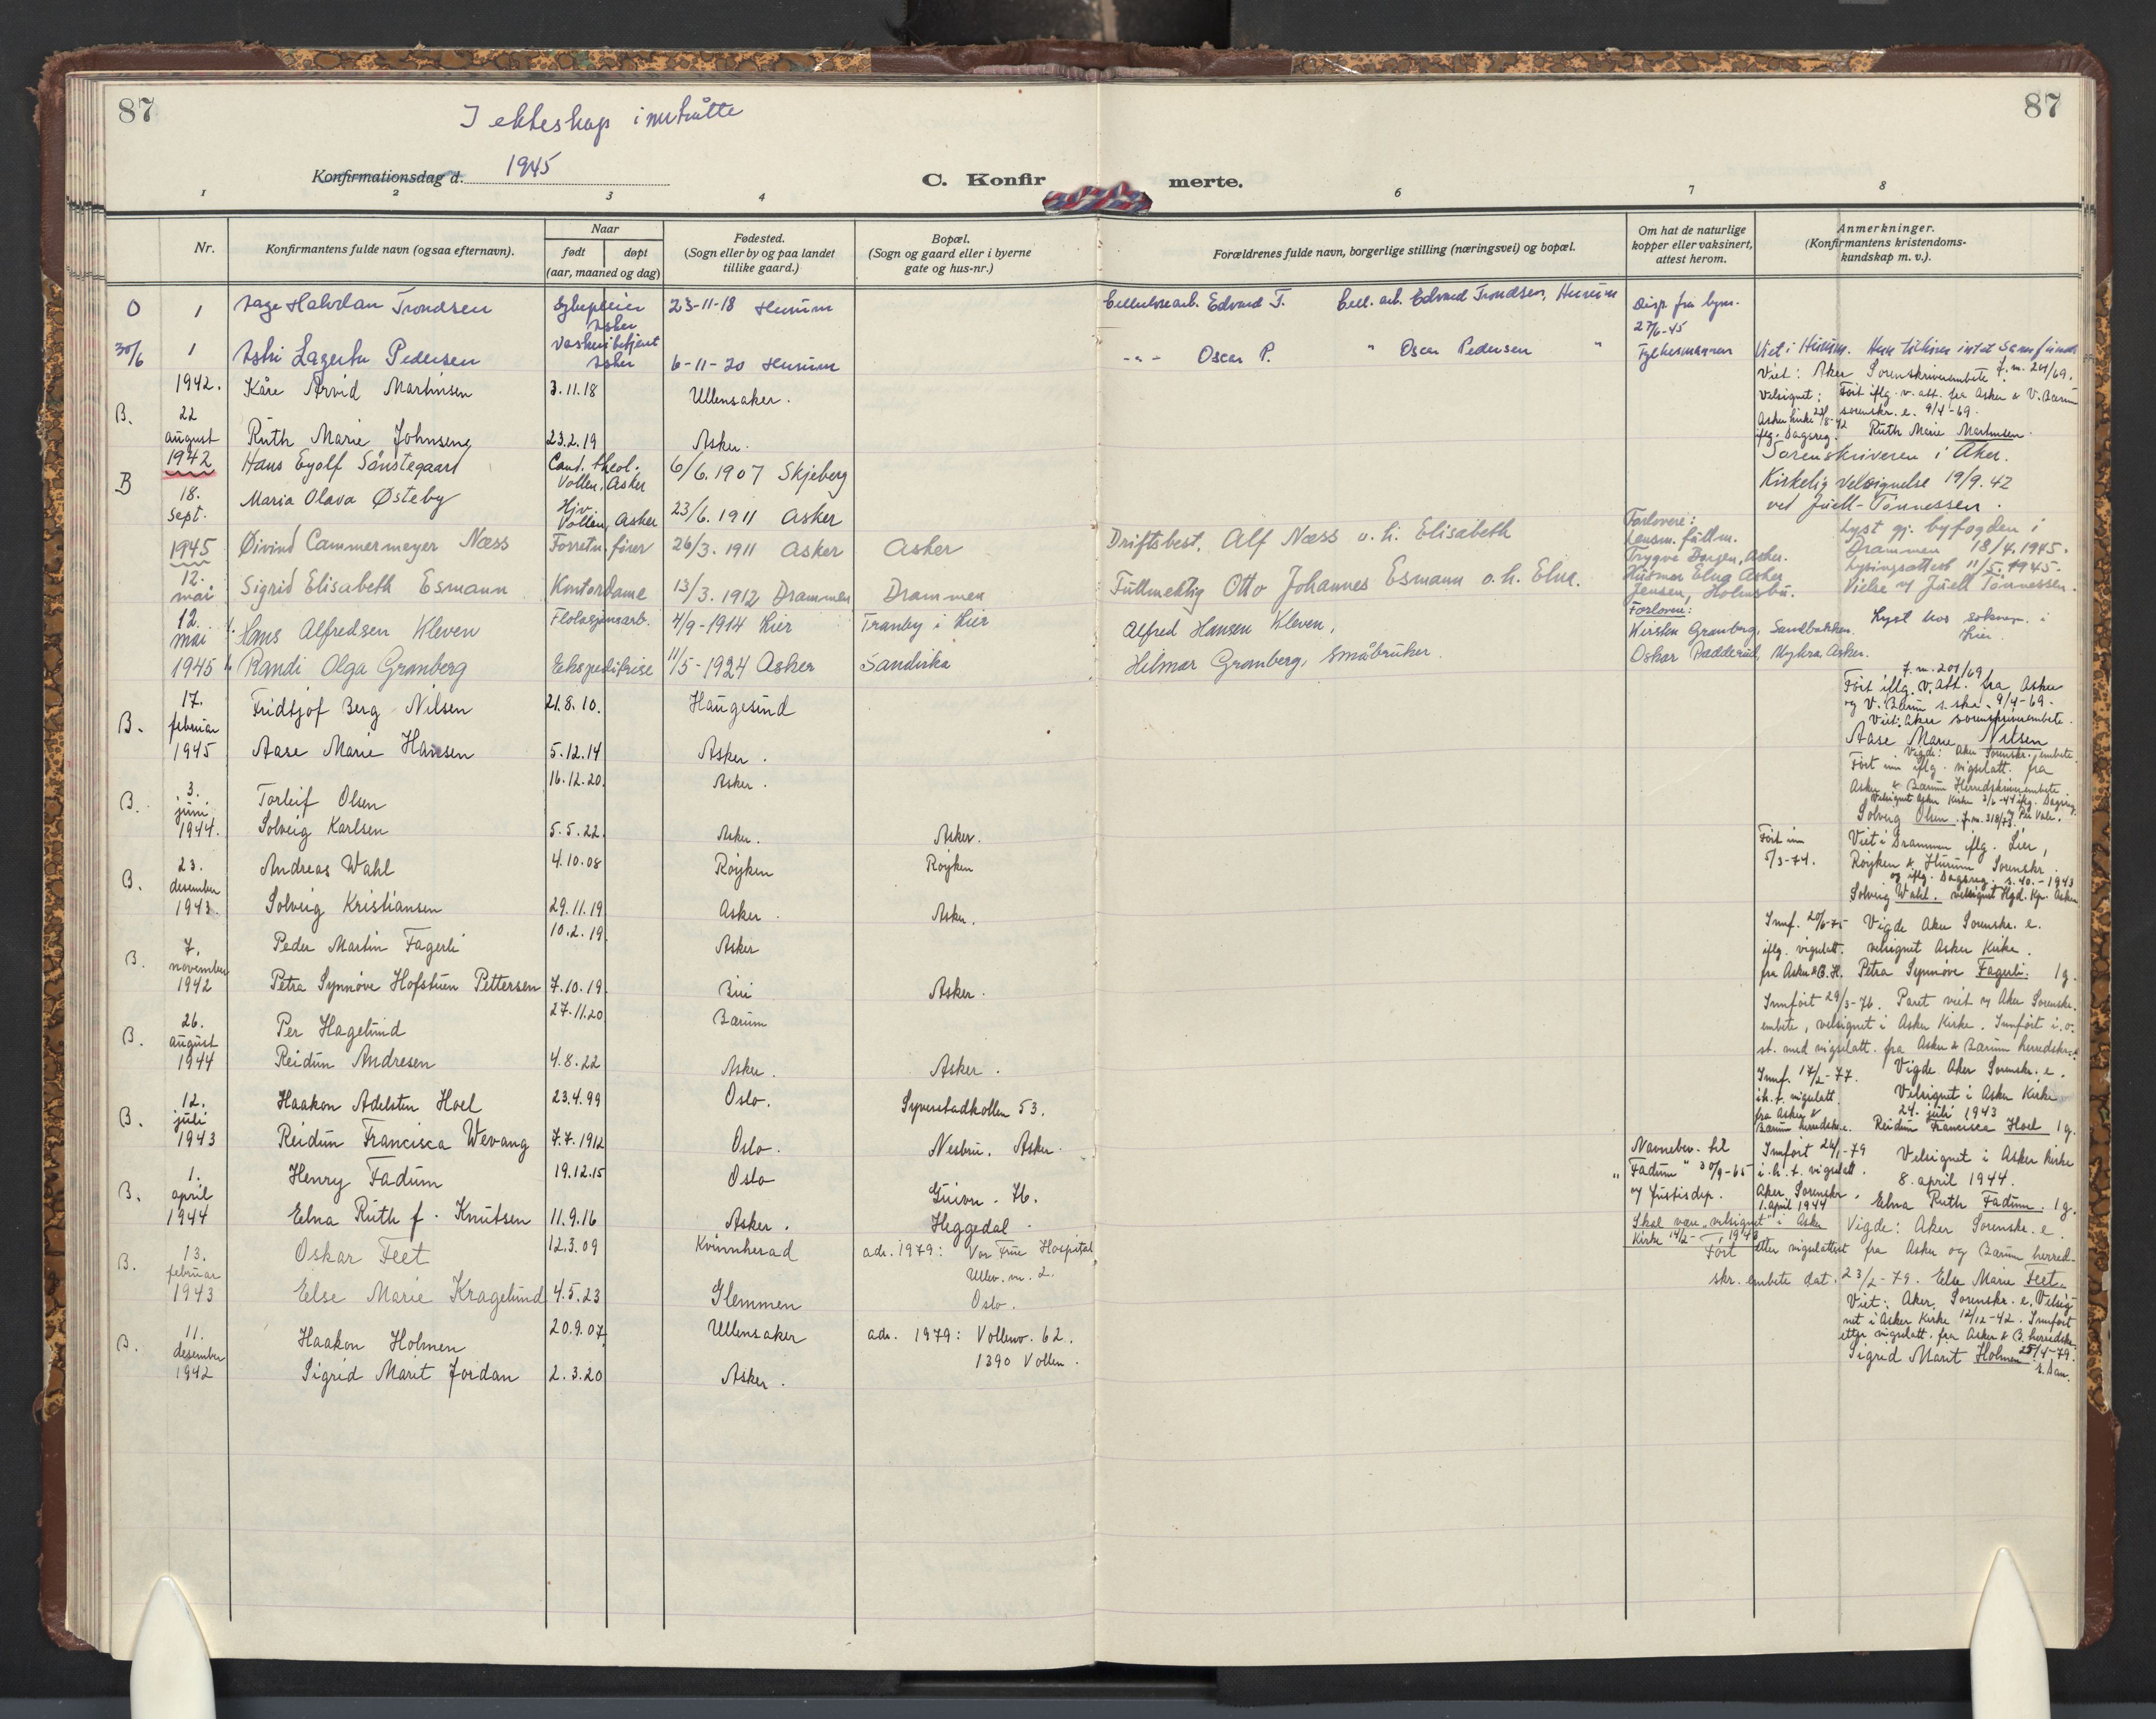 87
I ekteskap inntrådte
87
Konfirmationsdag d. 1945
C. Konfirmerte.
1 2 3 4 6 7 8
Nr.
Konfirmantens fulde navn (ogsaa efternavn).
Naar
født døpt
(aar, maaned og dag)
Fødested.
(Sogn eller by og paa landet
tillike gaard.)
Bopæl.
(Sogn og gaard eller i byerne
gate og hus-nr.)
Forældrenes fulde navn, borgerlige stilling (næringsvei) og bopæl.
Om hat de naturlige
kopper eller vaksinert,
attest herom.
Anmerkninger.
(Konfirmantens kristendoms-
kundskap m. v.).
O 1 Aage Halvdan Trondsen Sykepleier Asker 23-11-18 Hurum Cellulosearb. Edvard T. Cell. arb. Edvard Trondsen, Hurum Disp. fra lysn. 27/6-45
30/6 1 Astri Lagerta Pedersen Vaskeribetjent Asker 6-11-20 Hurum -"- Oscar P. " Oscar Pedersen " Fylkesmannen Viet i Hurum.
B. 22 august 1942. Kåre Arvid Martinsen 3.11.18 Ullensaker. Viet: Aker Sorenskriverembete. J.m. 201/69.
Velsignet: Asker kirke 22/8-42 iflg. Dagsreg.
Ført iflg. v. att. fra Asker & V. Bærum sorenskr. e. 9/4-69.
Ruth Marie Johnsen 23.2.19 Asker. Ruth Marie Martinsen.
B 1942 18. Sept. Hans Eyolf Sønstegaard Cand. theol. Vollen, Asker 6/6.1907 Skjeberg Sorenskriveren i Aker.
Maria Olava Østeby Hjv. Vollen, Asker 23/6.1911 Asker Kirkelig velsignelse 19/9.42
ved Juell-Tønnessen.
1945 12. mai Øivind Cammermeyer Næss Forretn.fører 26/3.1911 Asker Asker Driftsbest. Alf Næss o. h. Elisabeth Forlovere: Lensm. fullm. Trygve Borgen, Asker. Lyst gj. byfogden i Drammen 18/4.1945.
Sigrid Elisabeth Esmann Kontordame 13/3.1912 Drammen Drammen Fullmektig Otto Johannes Esmann o. h. Elna. Husmor Elna Asker Jensen, Holmsbu. Lysingsattest 11/5.1945.
Vielse v/ Juell Tønnessen.
12. mai 1945 Hans Alfredsen Kleven Flotasjonsarb. 4/9-1914 Lier Tranby i Lier Alfred Hansen Kleven, Forlovere: Kirsten Gramberg, Sandbakken. Lyst hos sokнepr. i Lier.
Randi Olga Gramberg Ekspeditrise 11/5-1924 Asker Sandvika Hilmar Gramberg, småbruker. Oskar Dædderud, Myhra, Asker.
B. 17. februar 1945 Fridtjof Berg Nilsen 21.8.10. Haugesund J.m. 201/69
Ført iflg. v. att. fra Asker
og V. Bærum s. skr. 9/4-69.
Viet: Aker sorenskriverembete.
Aase Marie Hansen 5.12.14 Asker. Aase Marie Nilsen
B. 3. juni 1944. Torleif Olsen 16.12.20. Asker. Vigde: Aker Sorenskr. embete.
Ført inn iflg. vigselatt. fra
Asker & Bærum Herredskriverembete
Velsignet Asker Kirke 3/6-44 iflg. Dagsreg.
Solveig Karlsen 5.5.22. Asker. Asker. Solveig Olsen. J.m. 318/73
B. 23. desember 1943. Andreas Wahl 4.10.08 Røyken Røyken Ført inn 5/3-74. Viet i Drammen iflg. Lier,
Røyken & Hurum Sorenskr.
og iflg. Dagsreg. s. 40.-1943
Solveig Kristiansen 29.11.19 Asker. Asker. Solveig Wahl. velsignet Hgd. Kp. Asker
B. 7. november 1942 Peder Martin Fagerli 10.2.19. Asker Innf. 20/6-75 Vigde Aker Sorenskr. e.
iflg. vigselatt. velsignet Asker Kirke.
Petra Synnøve Hofstuen Pettersen 7.10.19. Biri Asker. fra Asker & B. H. Petra Synnøve Fagerli. 1 g.
B. 26. august 1944 Per Hagelund 27.11.20 Bærum Innført 29/3-76. Paret viet v/ Aker Sorenskr.
embete, velsignet i Asker Kirke. Innført i. o.
Reidun Andresen 4.8.22 Asker. Asker. st. med vigselatt. fra Asker & Bærum herredskr.
B. 12. juli 1943 Haakon Adelsten Hoel 23.4.99 Oslo. Syverstadkollen 53. Innf. 17/2-77. Vigde Aker Sorenskr. e.
i h. t. vigselatt. fra Asker & Bærum herredskr. e. Velsignet i Asker Kirke
24. juli 1943
Reidun Francisca Wevang 7.7.1912 Oslo. Nesbru. Asker. Reidun Francisca Hoel 1 g.
B. 1. april 1944 Henry Fadum 19.12.15 Oslo Navnebev. til "Fadum" 30/9-65 v/ Justisdep. Innført 24/1-79 i. h. t. vigselatt. Aker Sorenskr. 1. april 1944 Velsignet i Asker kirke
8. april 1944.
Elna Ruth f. Knutsen 11.9.16 Asker. Heggedal. Elna Ruth Fadum. 1 g.
B. 13. februar 1943 Oskar Feet 12.3.09 Kvinnherad adr. 1979: Vor Frue Hospital Ullev. vn. 2. Oslo. Skal være "velsignet" i Asker Kirke 14/2-1943 Vigde: Aker Sorenskr. e.
Ført etter vigselattest fra Asker og Bærum herred-
Else Marie Kragelund 4.5.23 Glemmen skr. embete dat. 23/2-79. Else Marie Feet.
B. 11. desember 1942 Haakon Holmen 20.9.07. Ullensaker adr. 1979: Vollenv. 62. 1390 Vollen. Viet: Aker Sorenskr. e. Velsig-
net i Asker Kirke 12/12-42. Innført
etter vigselatt. fra Asker & B. herredskr.
Sigrid Marit Jordan 2.3.20 Asker. Sigrid Marit Holmen 25/4-79.